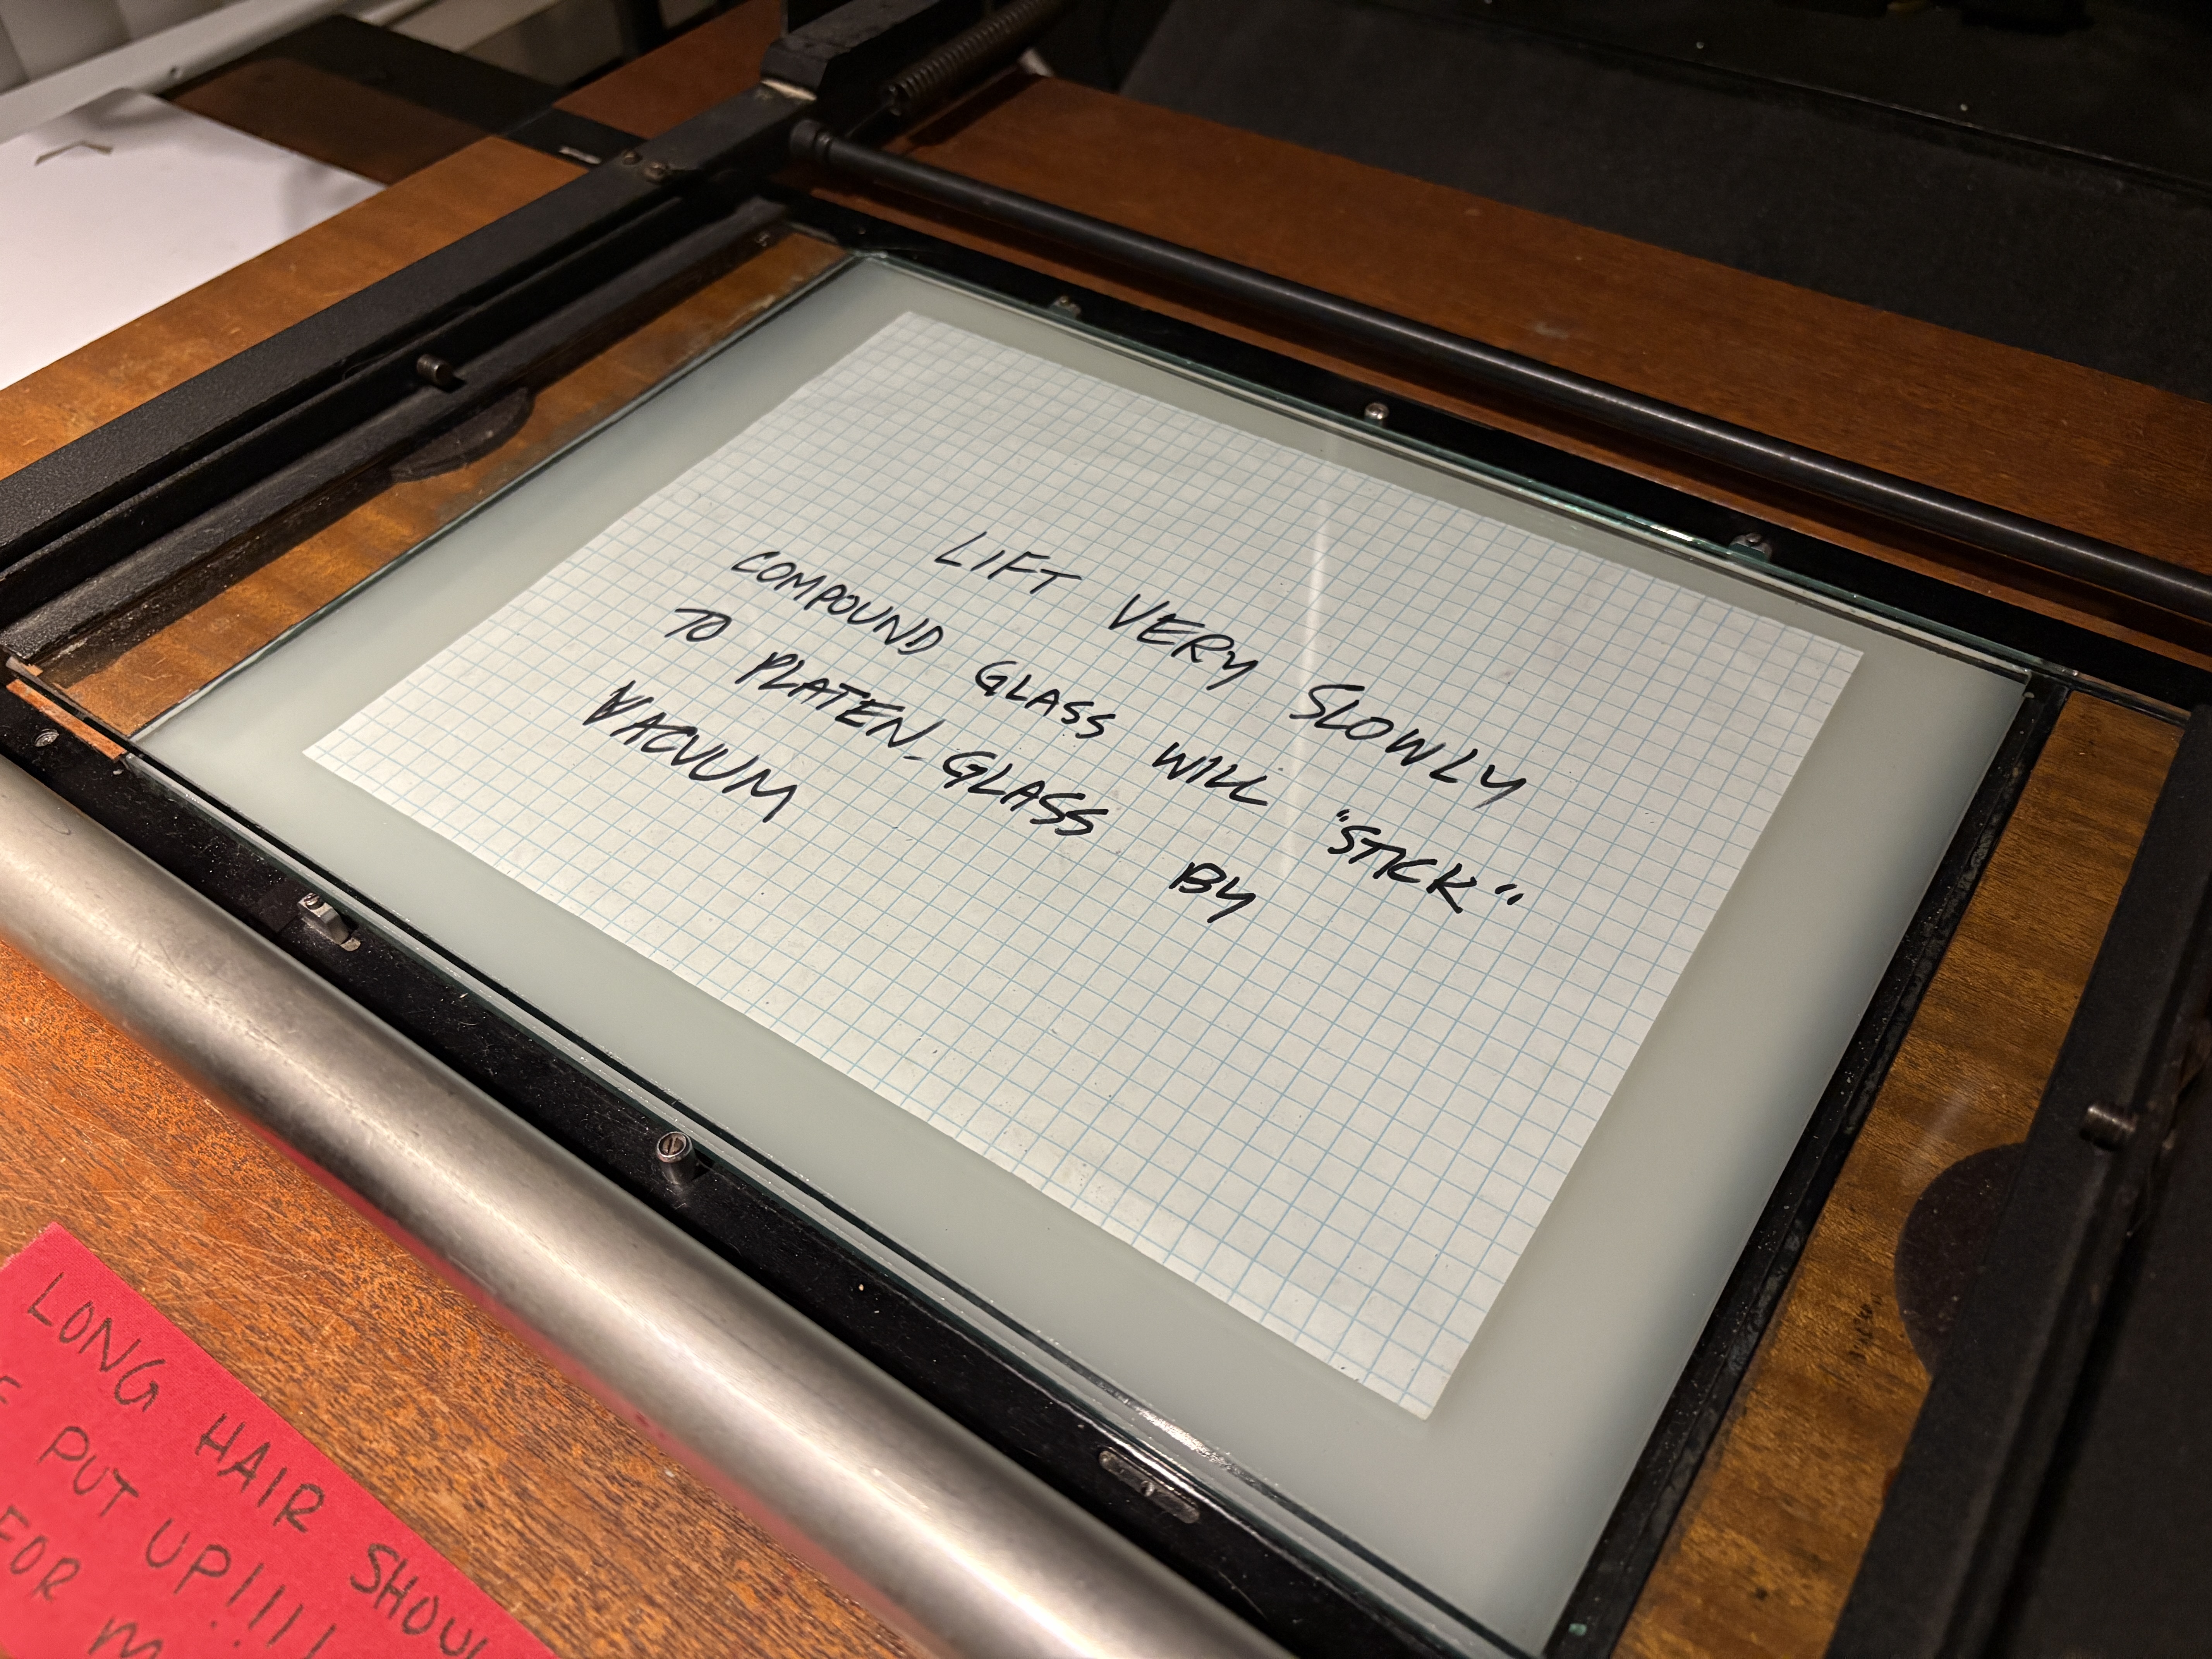 LIFT VERY SLOWLY
COMPOUND GLASS WILL "STICK"
TO PLATEN GLASS BY
VACUUM
LONG HAIR
PUT UP!!!!
FOR